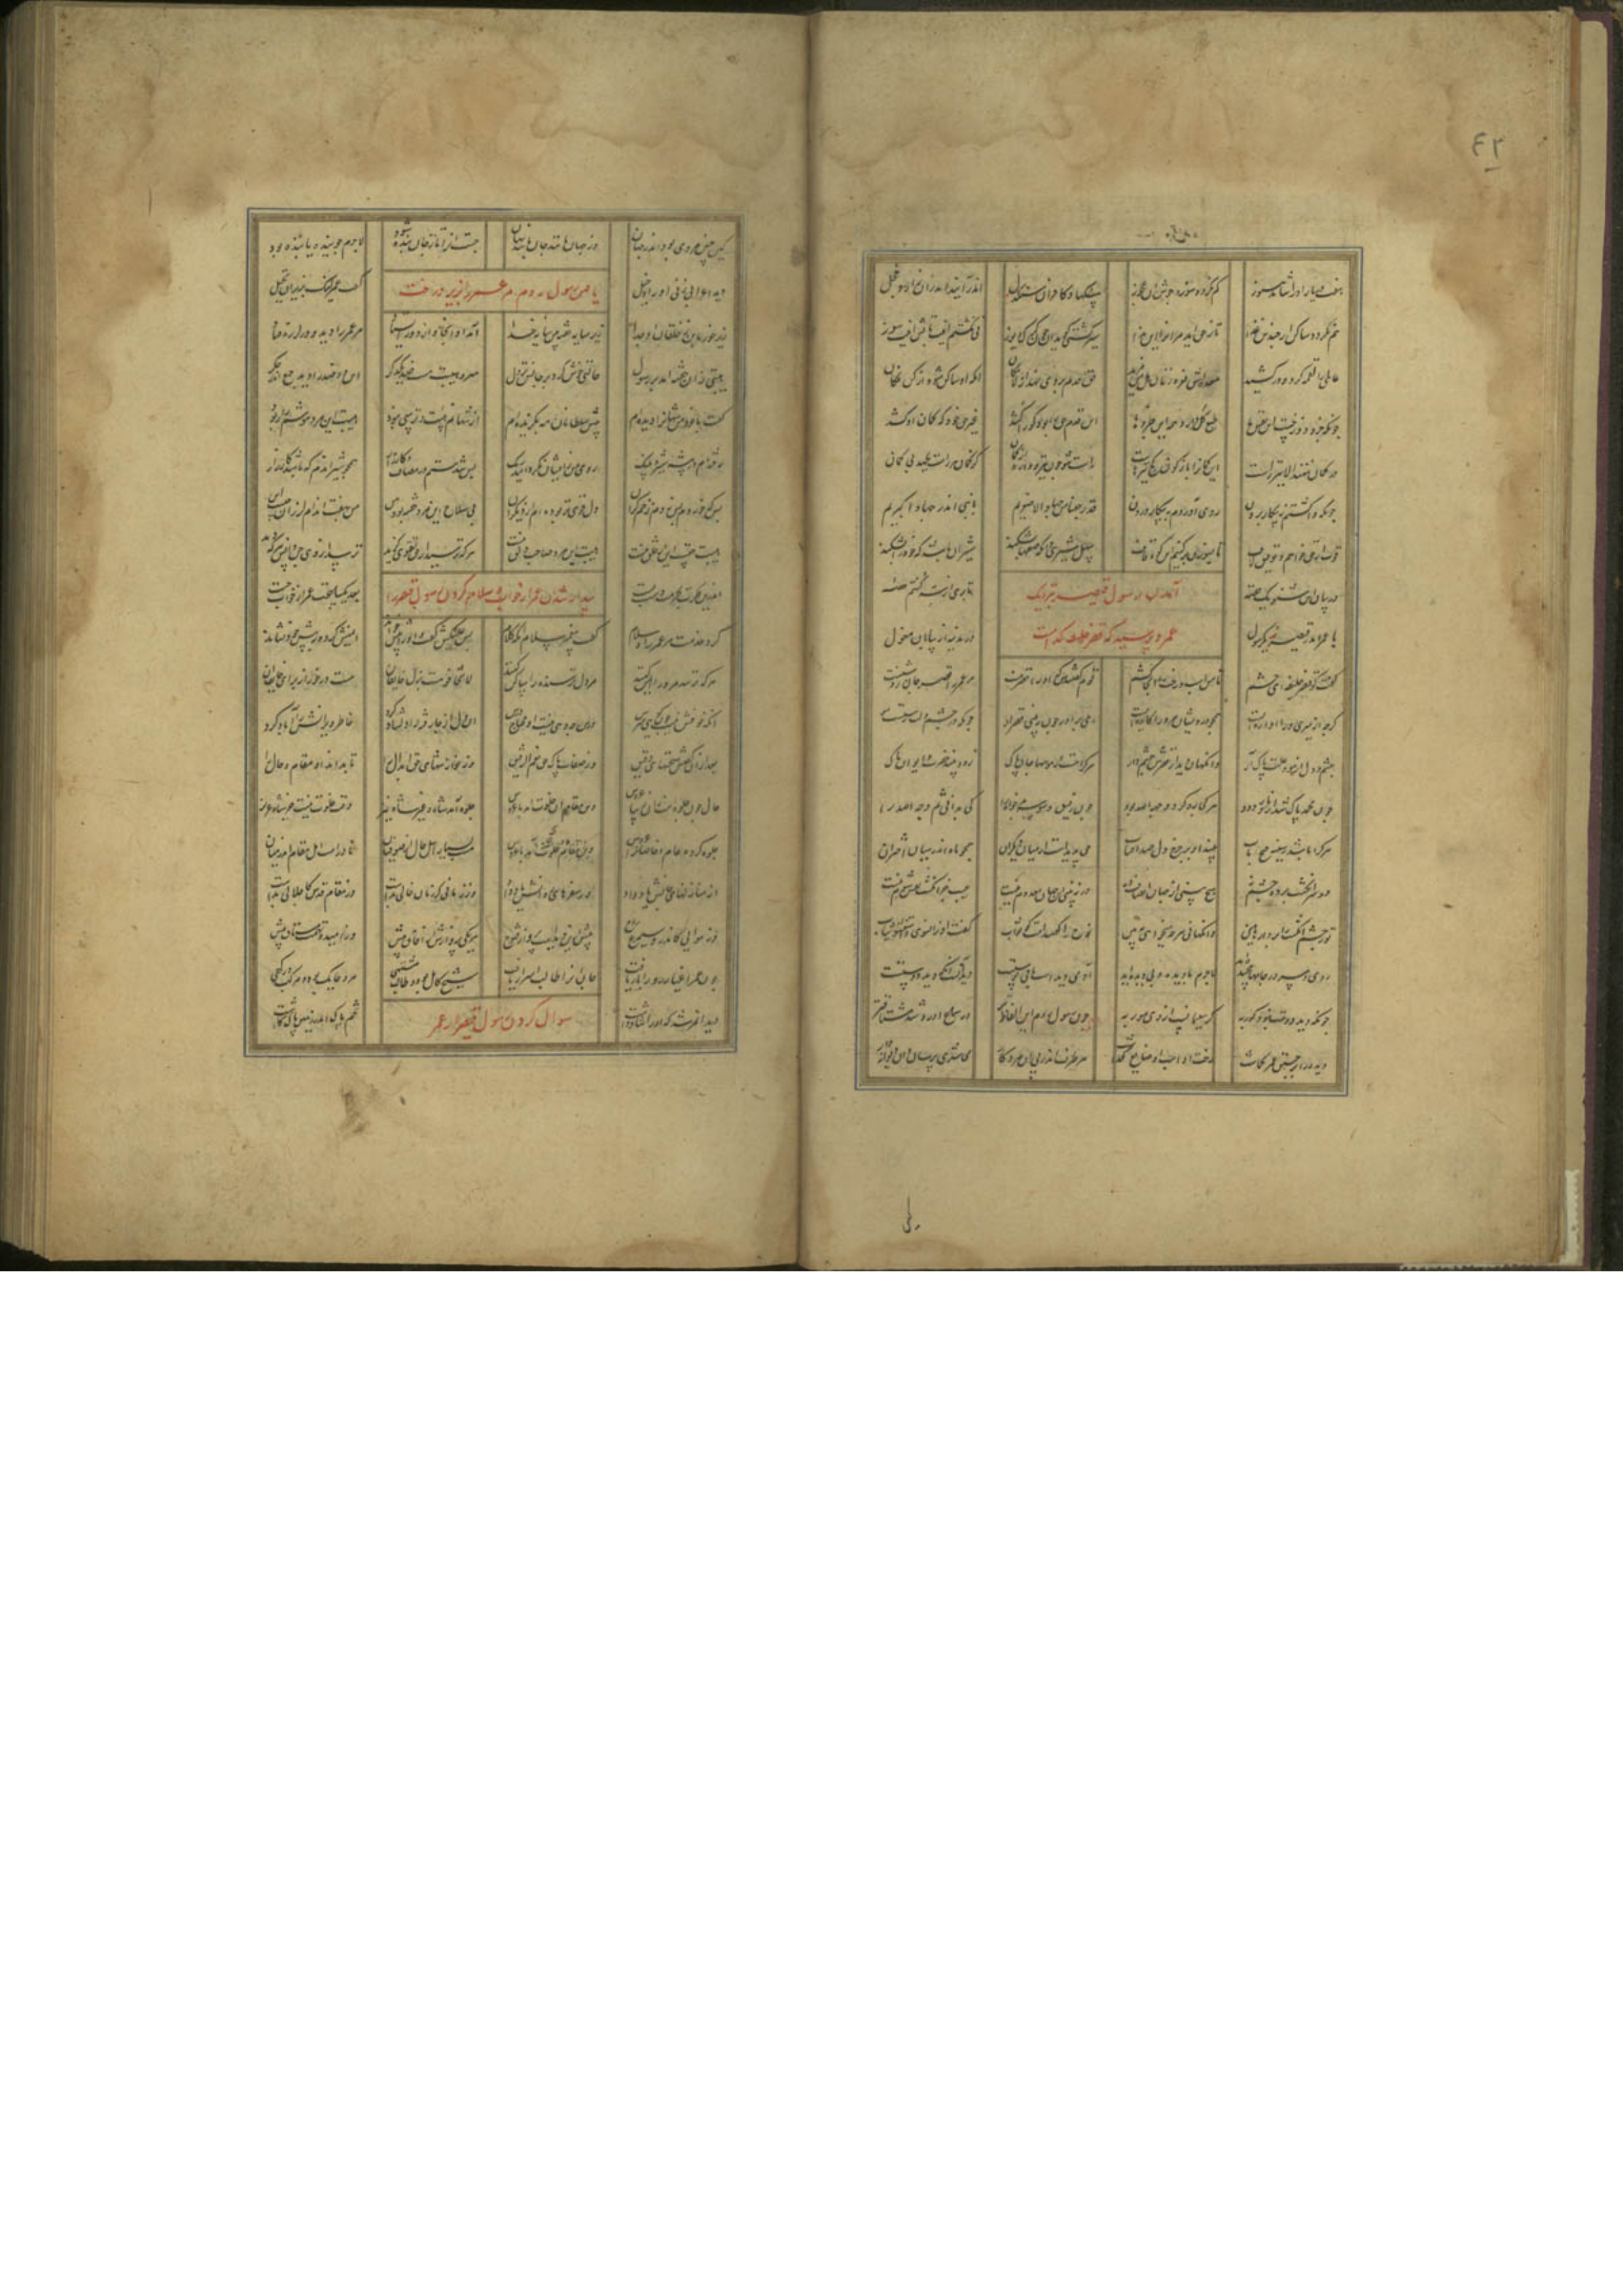 هفت دریا را در آشامد هنوز کم نگردد سوزش آن
سنگها و کافران سنگدل اندر آیند اندر زار و خجل
هم نگردد ساکن از چندین غذا تا ز حق آید مرا او را این ندا
سیر گشتی سیر گوید نی هنوز
عالمی را لقمه کرد و در کشید معده اش نعره زنان هل من مزید
حق قدم بر وی نهد از لامکان انکه او ساکن شود از کن فکان
چونکه جزو دوزخست این نفس ما طبع کل دارد جزوها
این قدم حق را بود کو را کشد غیر حق خود که کمان او کشد
در کمان ننهند الا تیر راست این کمان را باز کون کج تیرهاست
راست شو چون تیر و واره از کمان کز کمان هر راست بجهد بی کمان
چونکه وا گشتم ز پیکار برون روی آوردم به پیکار درون
قد رجعنا من جهاد الاصغریم با نبی اندر جهاد اکبریم
قوت از حق خواهم و توفیق و لاف تا بسوزن بر کنم این کوه قاف
سهل شیری دان که صفها بشکند شیر آن باشد که خود را بشکند
آمدن رسول قیصر بنزدیک
عمر و پرسیدن که قصر خلیفه کجاست
در بیان این شنو یک قصه تا بری از گفتم حصه
با عمر آمد ز قیصر یک رسول در مدینه از بیابان نغول
گفت کو قصر خلیفه ای حشم تا من اسب و رخت را آنجا کشم
قوم گفتندش که او را قصر نیست مر عمر را قصر جان روشنیست
کرچه از میری ورا آوازه ایست همچو درویشان مر او را کازه ایست
ای برادر چون ببینی قصر او چونکه در چشم دلت رستست مو
چشم دل از مو و علت پاک آر وانگهان دیدار قصرش چشم دار
هر کرا هست از هوسها جان پاک زود بیند حضرت و ایوان پاک
چون محمد پاک شد از نار و دود هر کجا رو کرد وجه الله بود
چون رفیقی وسوسه بدخواه را کی بدانی ثم وجه الله را
هر کرا باشد ز سینه فتح باب بیند او بر چرخ دل صد آفتاب
حق پدیدست از میان دیگران همچو ماه اندر میان اختران
دو سر انگشت بر دو چشم نه هیچ بینی از جهان انصاف ده
ور نبینی این جهان معدوم نیست عیب جز انگشت نفس شوم نیست
تو ز چشم انگشت را بردار هین وانگهانی هرچه میخواهی ببین
نوح را گفتند امت کو ثواب گفت او زانسوی واستغشوا ثیاب
روی و سر در جامها پیچیده اند لاجرم با دیده و نادیده اند
آدمی دیدست باقی پوستست دید آنست آنکه دید دوستست
چونکه دید دوست نبود کور به گر سلیمانست از وی مور به
چون رسول روم این الفاظ تر در سماع آورد شد مشتاقتر
دیده را بر جستن عمر گماشت رخت او اسب او ضایع گذاشت
هر طرف اندر پی آن مرد کار می شدی پرسان او دیوانه وار
کین چنین مردی بود اندر جهان وز جهان مانند جان باشد نهان
جست او را تاش چون بنده شود لاجرم جوینده یابنده بود
یافتن رسول روم عمر را زیر درخت
دید اعرابی زنی او را دخیل گفت عمر نک بزیر آن نخیل
زیر خرما بن ز خلقان او جدا زیر سایه خفته بین سایه خدا
آمد او آنجا و از دور ایستاد مر عمر را دید و در لرزه فتاد
هیبتی زان خفته آمد بر رسول حالتی خوش کرد بر جانش نزول
مهر و هیبت هست ضد یکدگر این دو ضد را دید جمع اندر جگر
گفت با خود من شهانرا دیده ام پیش سلطانان مه بگزیده ام
از شهانم هیبت و ترسی نبود هیبت این مرد هوشم را ربود
رفته ام در بیشه شیر و پلنگ روی من زیشان نگردانید رنگ
بس شدستم در مصاف و کارزار همچو شیر آندم که باشد کار زار
بس که خوردم بس زدم زخم گران دل قوی تر بوده ام از دیگران
بی سلاح این مرد خفته بر زمین من بهفت اندام لرزان
هیبت حقست این از خلق نیست هیبت این مرد صاحب دلق نیست
هرکه ترسید از حق و تقوی گزید ترسد از وی جن و انس و هر که دید
بیدار شدن عمر از خواب و سلام کردن رسول قیصر را
اندرین فکرت بحرمت دست بست بعد یکساعت عمر از خواب جست
کرد خدمت مر عمر را و سلام گفت پیغمبر سلام آنگه کلام
پس علیکش گفت و او را پیش خواند ایمنش کرد و به پیش خود نشاند
هرکه ترسد مر ورا ایمن کنند مر دل ترسنده را ساکن کنند
لاتخافوا هست نزل خایفان هست در خور از برای خایف آن
آنکه خوفش نیست چون گویی مترس درس چه دهی نیست او محتاج درس
آن دل از جا رفته را دلشاد کرد خاطر ویرانش را آباد کرد
بعد از آن گفتش سخنهای دقیق وز صفات پاک حق نعم الرفیق
وز نوازشهای حق ابدال را تا بداند او مقام و حال را
حال چون جلوه است زان زیبا عروس وین مقام آن خلوت آمد با عروس
جلوه آمد شاه و غیر شاه نیز وقت خلوت نیست جز شاه عزیز
جلوه کرده عام و خاصان را عروس خلوت اندر شاه باشد با عروس
هست بسیار اهل حال از صوفیان نادرست اهل مقام اندر میان
از منازلهای جانش یاد داد وز سفرهای روانش یاد داد
وز زمانی کز زمان خالی بدست وز مقام قدس کاجلالی بدست
وز هوایی کاندرو سیمرغ روح پیش ازین دیدست پرواز و فتوح
هر یکی پروازش از آفاق بیش وز امید و نهمت مشتاق بیش
چون عمر اغیار رو را یار یافت جان او را طالب اسرار یافت
شیخ کامل بود و طالب مشتهی مرد چابک بود و مرکب درگهی
دید آن مرشد که او ارشاد داشت تخم پاک اندر زمین پاک کاشت
سوال کردن رسول قیصر از عمر